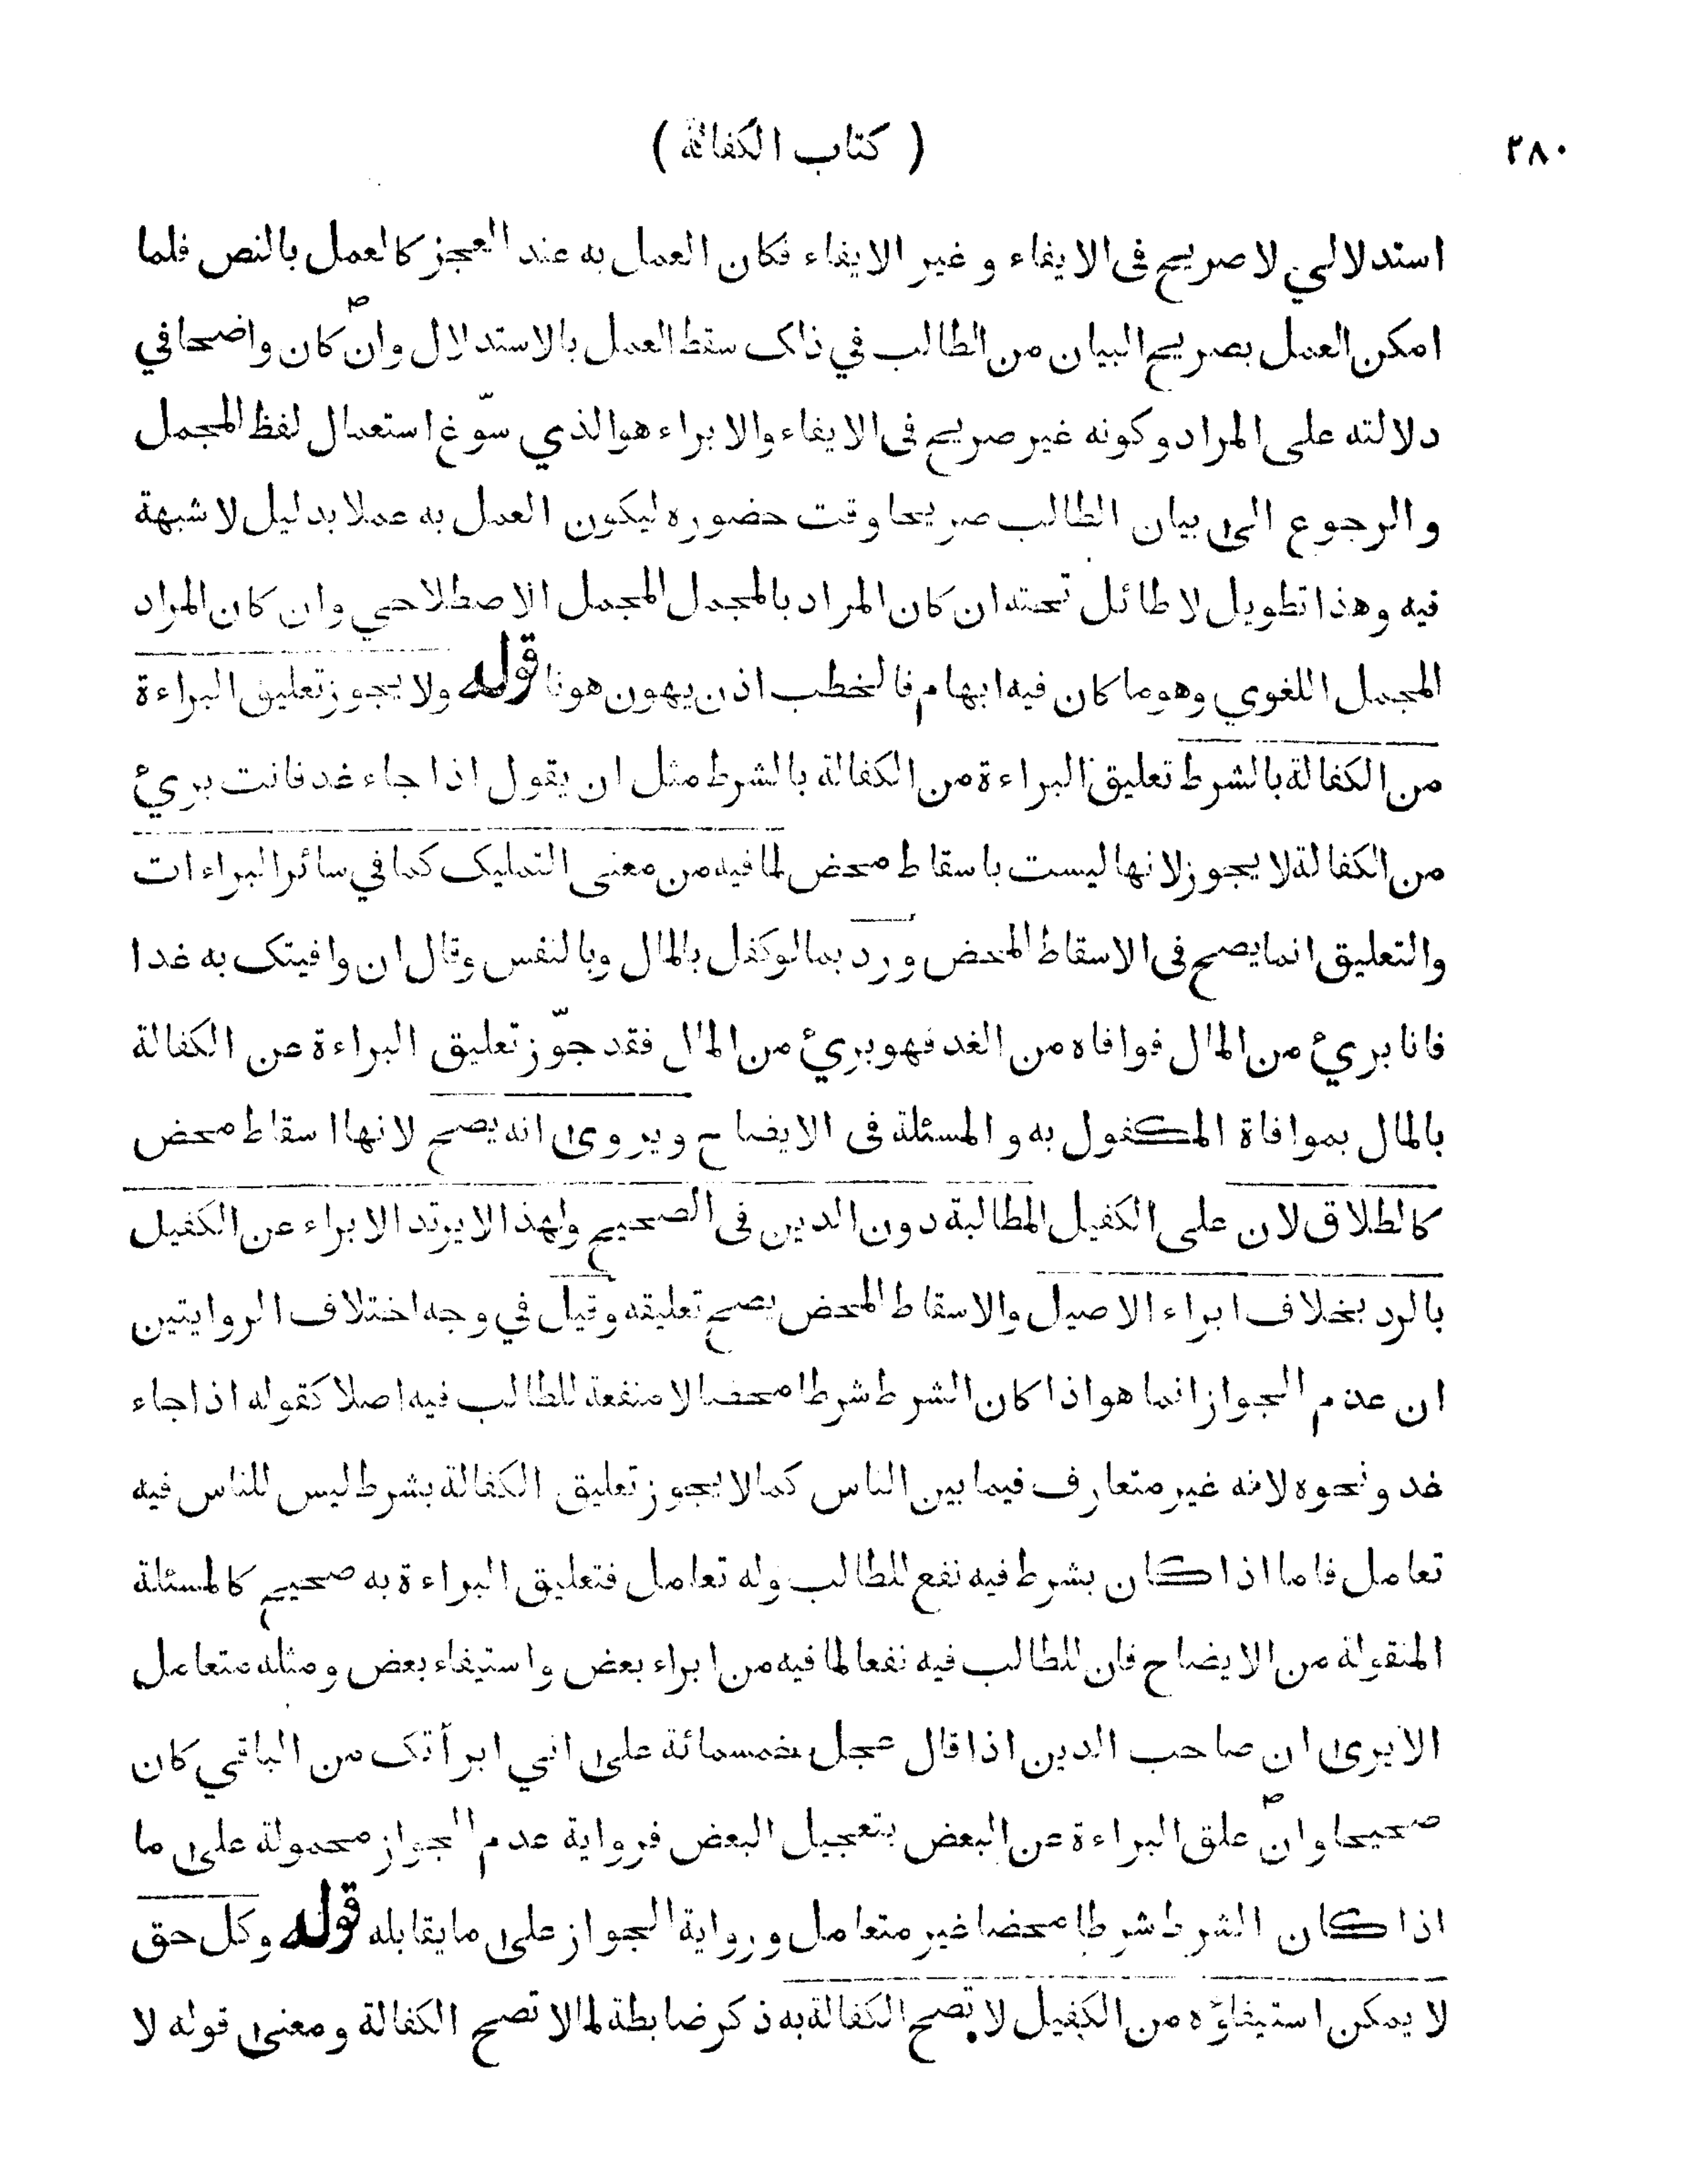 ٢٨٠ ( كتاب الكفالة )
استدلالي لا صريح فى الايفاء و غير الايفاء فكان العمل به عند العجز كالعمل بالنص فلما
امكن العمل بصريح البيان من الطالب في ذاك سقط العمل بالاستدلال وان كان واضحا في
دلالته على المراد وكونه غير صريح فى الايفاء والابراء هو الذي سوّغ استعمال لفظ المجمل
و الرجوع الى بيان الطالب صريحا وقت حضوره ليكون العمل به عملا بدليل لا شبهة
فيه وهذا تطويل لا طائل تحته ان كان المراد بالمجمل المجمل الاصطلاحي وان كان المراد
المجمل اللغوي وهو ما كان فيه ابهام فالخطب اذن يهون هونا قوله ولا يجوز تعليق البراءة
من الكفالة بالشرط تعليق البراءة من الكفالة بالشرط مثل ان يقول اذا جاء غد فانت بريئ
من الكفالة لا يجوز لانها ليست باسقاط محض لما فيه من معنى التمليك كما في سائر البراءات
والتعليق انما يصح فى الاسقاط المحض ورد بما لو كفل بالمال وبالنفس وقال ان وافيتك به غدا
فانا بريئ من المال فوافاه من الغد فهو بريئ من المال فقد جوّز تعليق البراءة عن الكفالة
بالمال بموافاة المكفول به و المسئلة فى الايضاح ويروى انه يصح لانها اسقاط محض
كالطلاق لان على الكفيل المطالبة دون الدين فى الصحيح ولهذا لا يرتد الابراء عن الكفيل
بالرد بخلاف ابراء الاصيل والاسقاط المحض يصح تعليقه وقيل في وجه اختلاف الروايتين
ان عدم الجواز انما هو اذا كان الشرط شرطا محضا لا منفعة للطالب فيه اصلا كقوله اذا جاء
غد ونحوه لانه غير متعارف فيما بين الناس كما لا يجوز تعليق الكفالة بشرط ليس للناس فيه
تعامل فاما اذا كان بشرط فيه نفع للطالب وله تعامل فتعليق البراءة به صحيح كالمسئلة
المنقولة من الايضاح فان للطالب فيه نفعا لما فيه من ابراء بعض واستيفاء بعض ومثله متعامل
الا يرى ان صاحب الدين اذا قال عجل خمسمائة على اني ابرأتك من الباقي كان
صحيحا وان علق البراءة عن البعض بتعجيل البعض فرواية عدم الجواز محمولة على ما
اذا كان الشرط شرطا محضا غير متعامل ورواية الجواز على ما يقابله قوله وكل حق
لا يمكن استيفاؤه من الكفيل لا تصح الكفالة به ذكر ضابطة لما لا تصح الكفالة ومعنى قوله لا